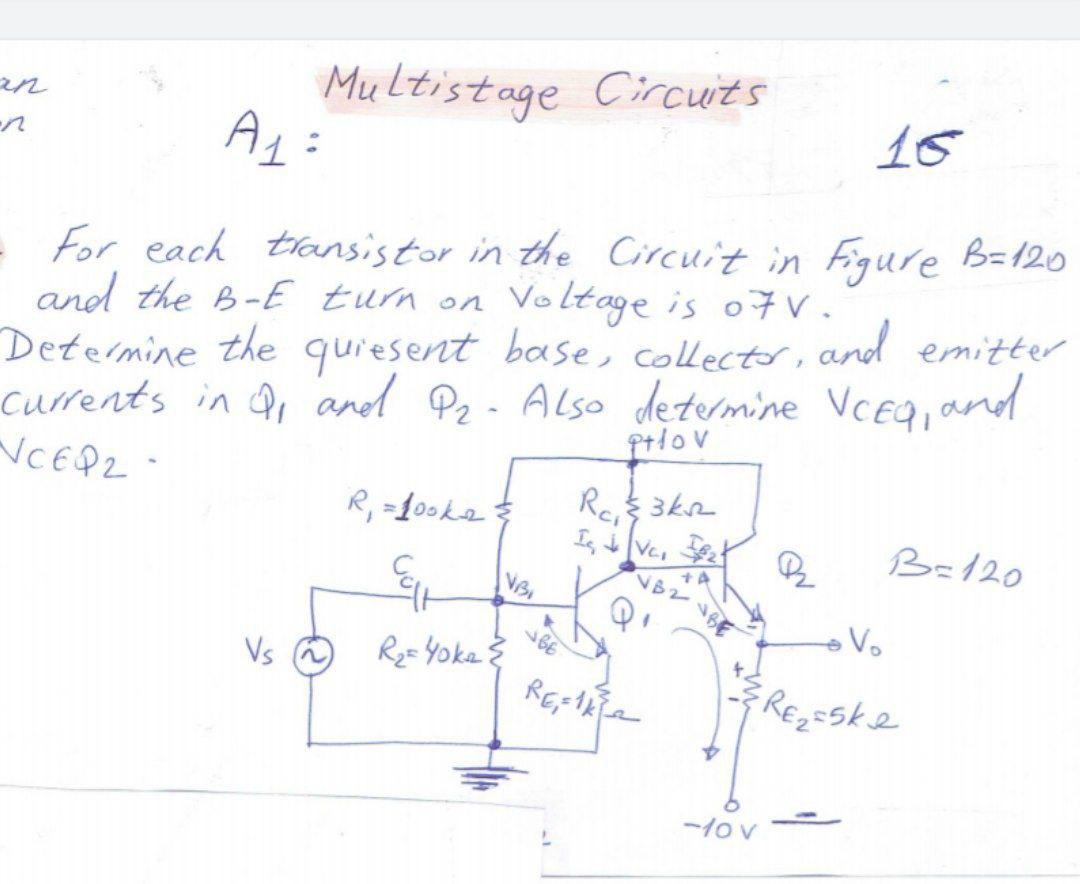 an
n
Multistage Circuits
A1:
15
For each transistor in the Circuit in Figure B=120
and the B-E turn on Voltage is 07V.
Determine the quiesent base, collector, and emitter
currents in Q1 and Q2. Also determine VCEQ1, and
VCEQ2.
+10V
R1=100kΩ
RC1 3kΩ
IC1 VC1 IB2
Q2
B=120
CC
VB1
VB2 +
Q1
VBE -
VBE
Vo
Vs
R2=40kΩ
RE1=1kΩ
+
-
RE2=5kΩ
-10V